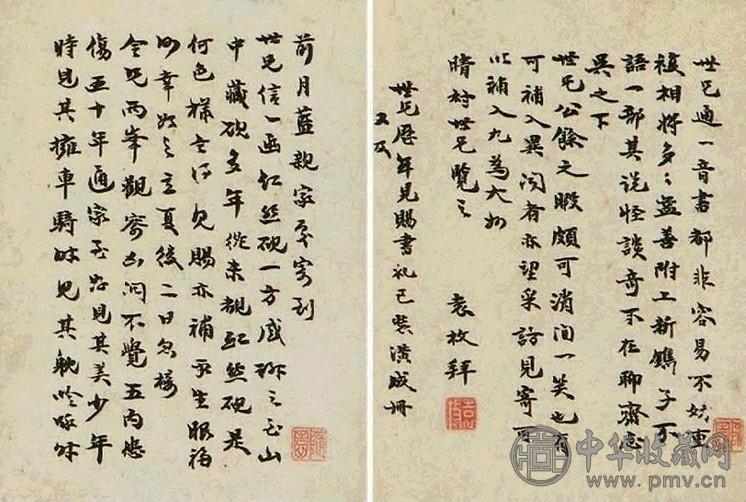 前月藍款家寄到
世兄信一函紅絲硯一方感謝之至山
中藏硯多年從未覩紅絲硯是
何色樣今得見賜亦補平生眼福
何幸如之立夏後二日忽接
令兄兩峯觀察凶問不覺五內悲
傷五十年通家至好見其美少年
時見其擁車騎時見其耽吟咏時
世兄通一音書都非容易不妨連
複相將多多益善附上新鐫子不
語一部其說怪談奇不在聊齋志
異之下
世兄公餘之暇頗可消閒一笑也有
可補入異聞者亦望采訪見寄可
以補入尤為大妙
晴村世兄覽之
袁枚拜
世兄歷年見賜書札已裝潢成冊
又及
袁枚
中华收藏网
www.pmv.cn